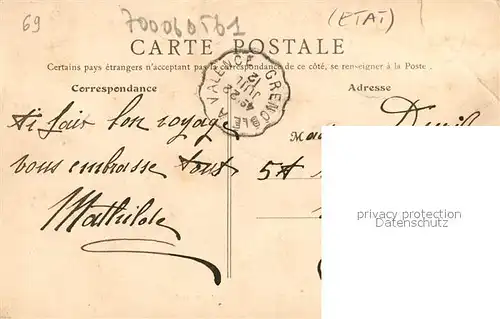 69
700060561
(ETAT)
CARTE POSTALE
Certains pays étrangers n'acceptant pas la correspondance de ce côté, se renseigner à la Poste.
Correspondance
Adresse
GRENOBLE A VALENCE
22
JUIL
12
Ai fait bon voyage
vous embrasse tous
Mathilde
M
5t
privacy protection
Datenschutz